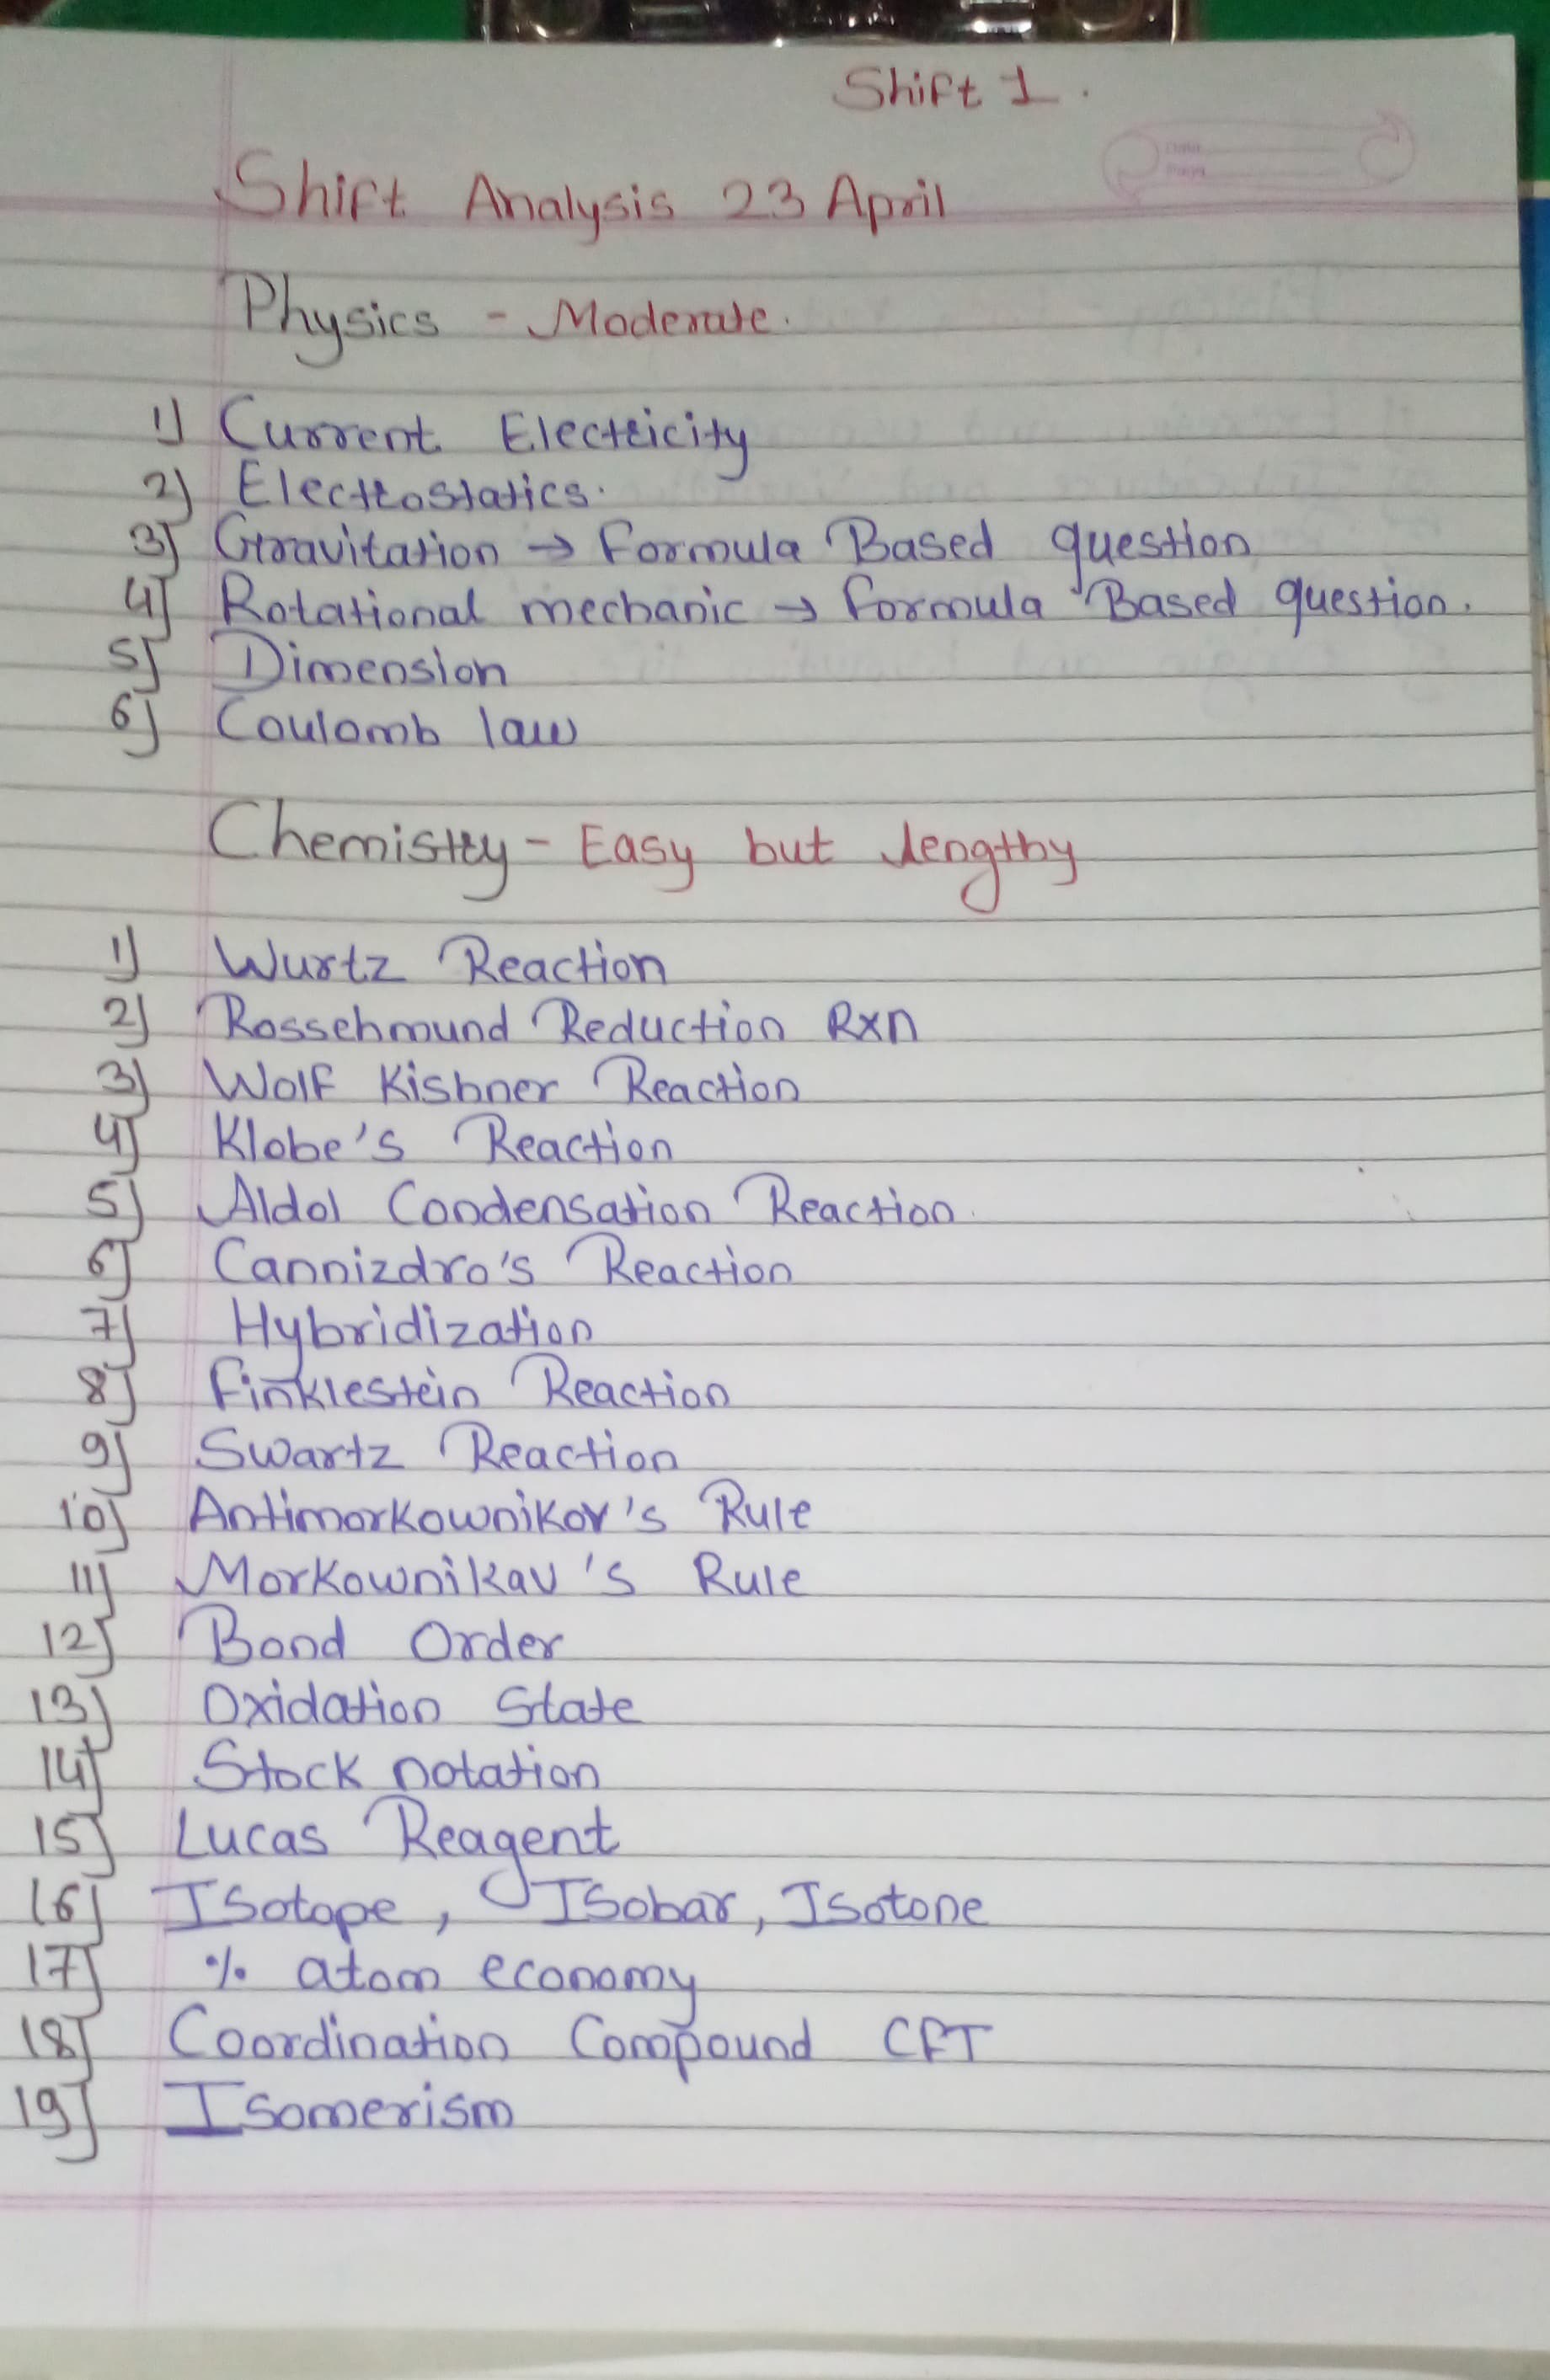 Shift 1.
Shift Analysis 23 April
Physics - Moderate.
1) Current Electricity
2) Electrostatics.
3) Gravitation → Formula Based question
4) Rotational mechanic → Formula Based question.
5) Dimension
6) Coulomb law
Chemistry - Easy but lengthy
1) Wurtz Reaction
2) Rossehmund Reduction Rxn
3) Wolf Kishner Reaction
4) Klobe's Reaction
5) Aldol Condensation Reaction.
6) Cannizdro's Reaction
7) Hybridization
8) Finklestein Reaction
9) Swartz Reaction
10) Antimorkownikov's Rule
11) Morkownikav's Rule
12) Bond Order
13) Oxidation State
14) Stock notation
15) Lucas Reagent
16) Isotope, Isobar, Isotone
17) % atom economy
18) Coordination Compound CFT
19) Isomerism